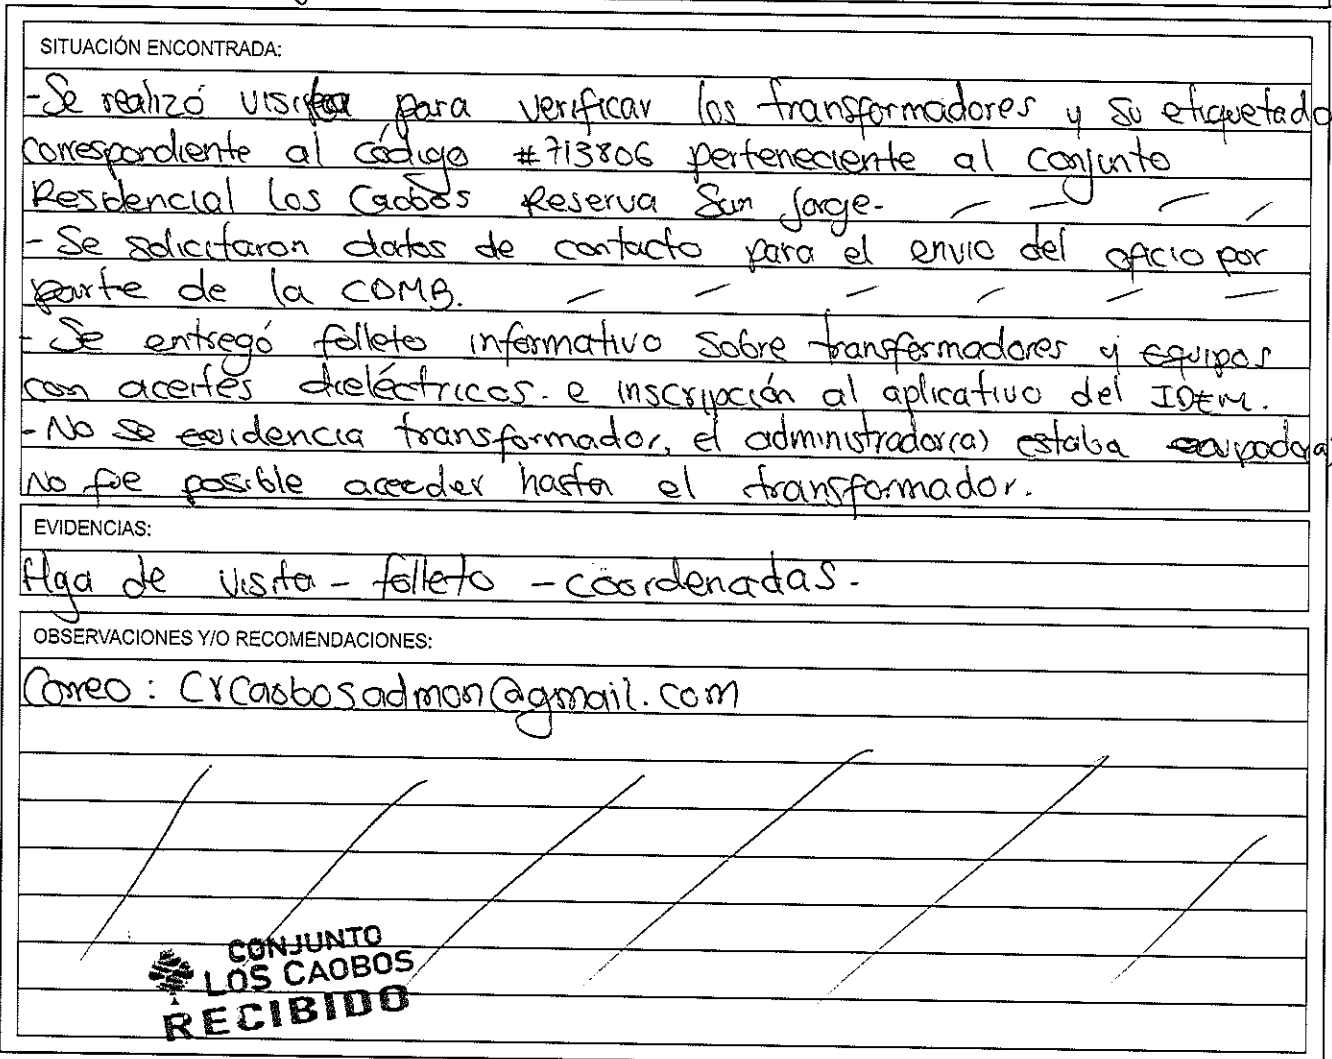 SITUACIÓN ENCONTRADA:
-Se realizó visita para verificar los transformadores y su etiquetado
correspondiente al código #713806 perteneciente al conjunto
Residencial los Caobos Reserva San Jorge-
- Se solicitaron datos de contacto para el envio del oficio por
parte de la CDMB.
- Se entregó folleto informativo sobre transformadores y equipos
con aceites dieléctricos. e inscripción al aplicativo del IDEM.
- No se evidencia transformador, el administrador(a) estaba
No fue posible acceder hasta el transformador.
EVIDENCIAS:
de visita - folleto - coordenadas-
OBSERVACIONES Y/O RECOMENDACIONES:
Correo: CrCaobosadmon@gmail.com
CONJUNTO
LOS CAOBOS
RECIBIDO